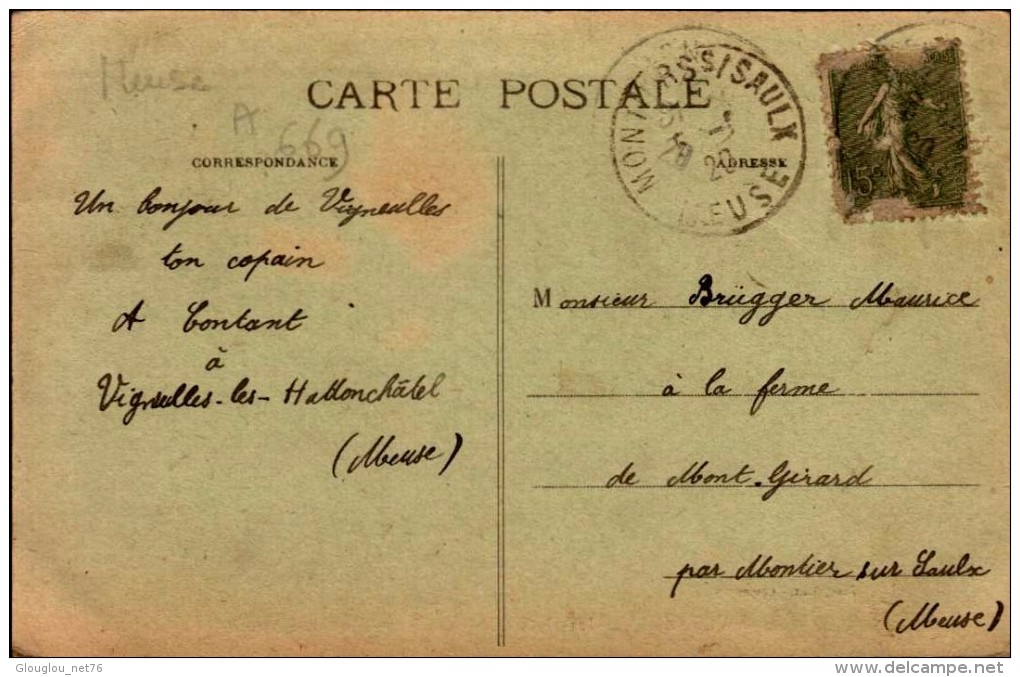 Meuse
A
669
CARTE POSTALE
CORRESPONDANCE
ADRESSE
MEUSE
20
15c
Un bonjour de Vigneulles
ton copain
A Contant
à
Vigneulles-les-Hattonchâtel
(Meuse)
Monsieur Brügger Maurice
à la ferme
de Mont-Girard
par Montier sur Saulx
(Meuse)
Glouglou_net76
http://www.delcampe.net